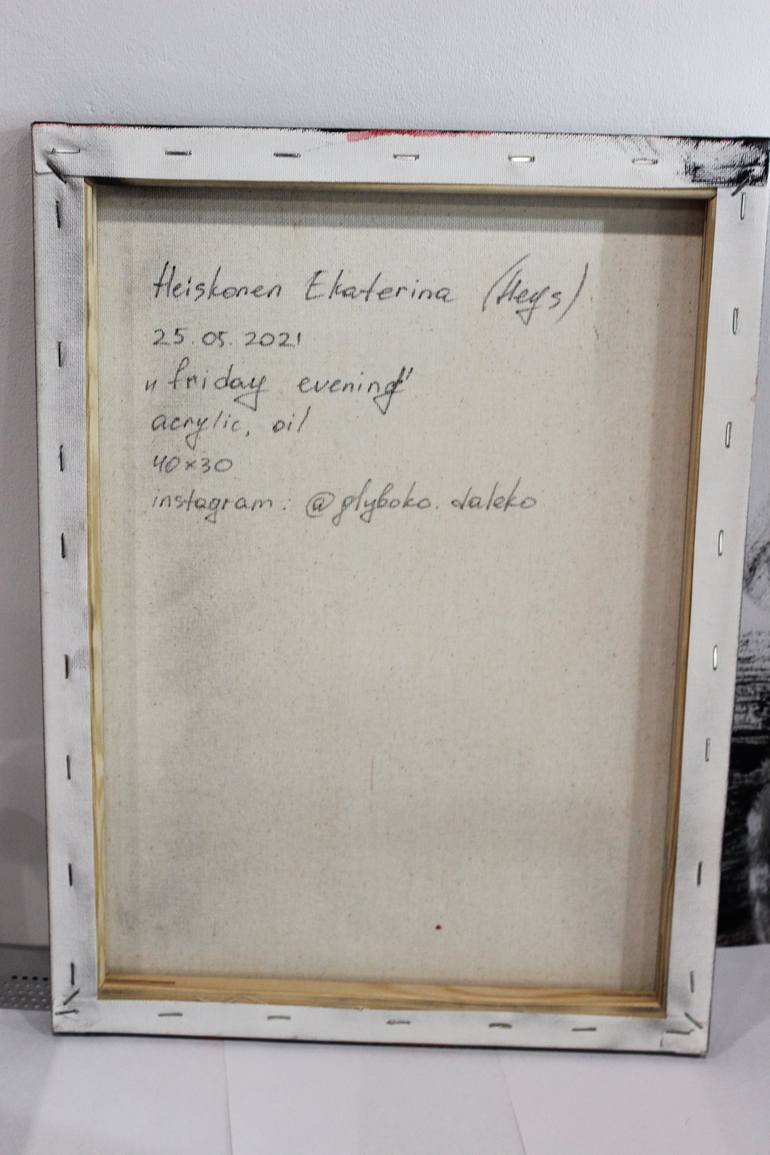 Heiskonen Ekaterina (Heys)
25.05.2021
„friday evening"
acrylic, oil
40×30
instagram: @glyboko.daleko